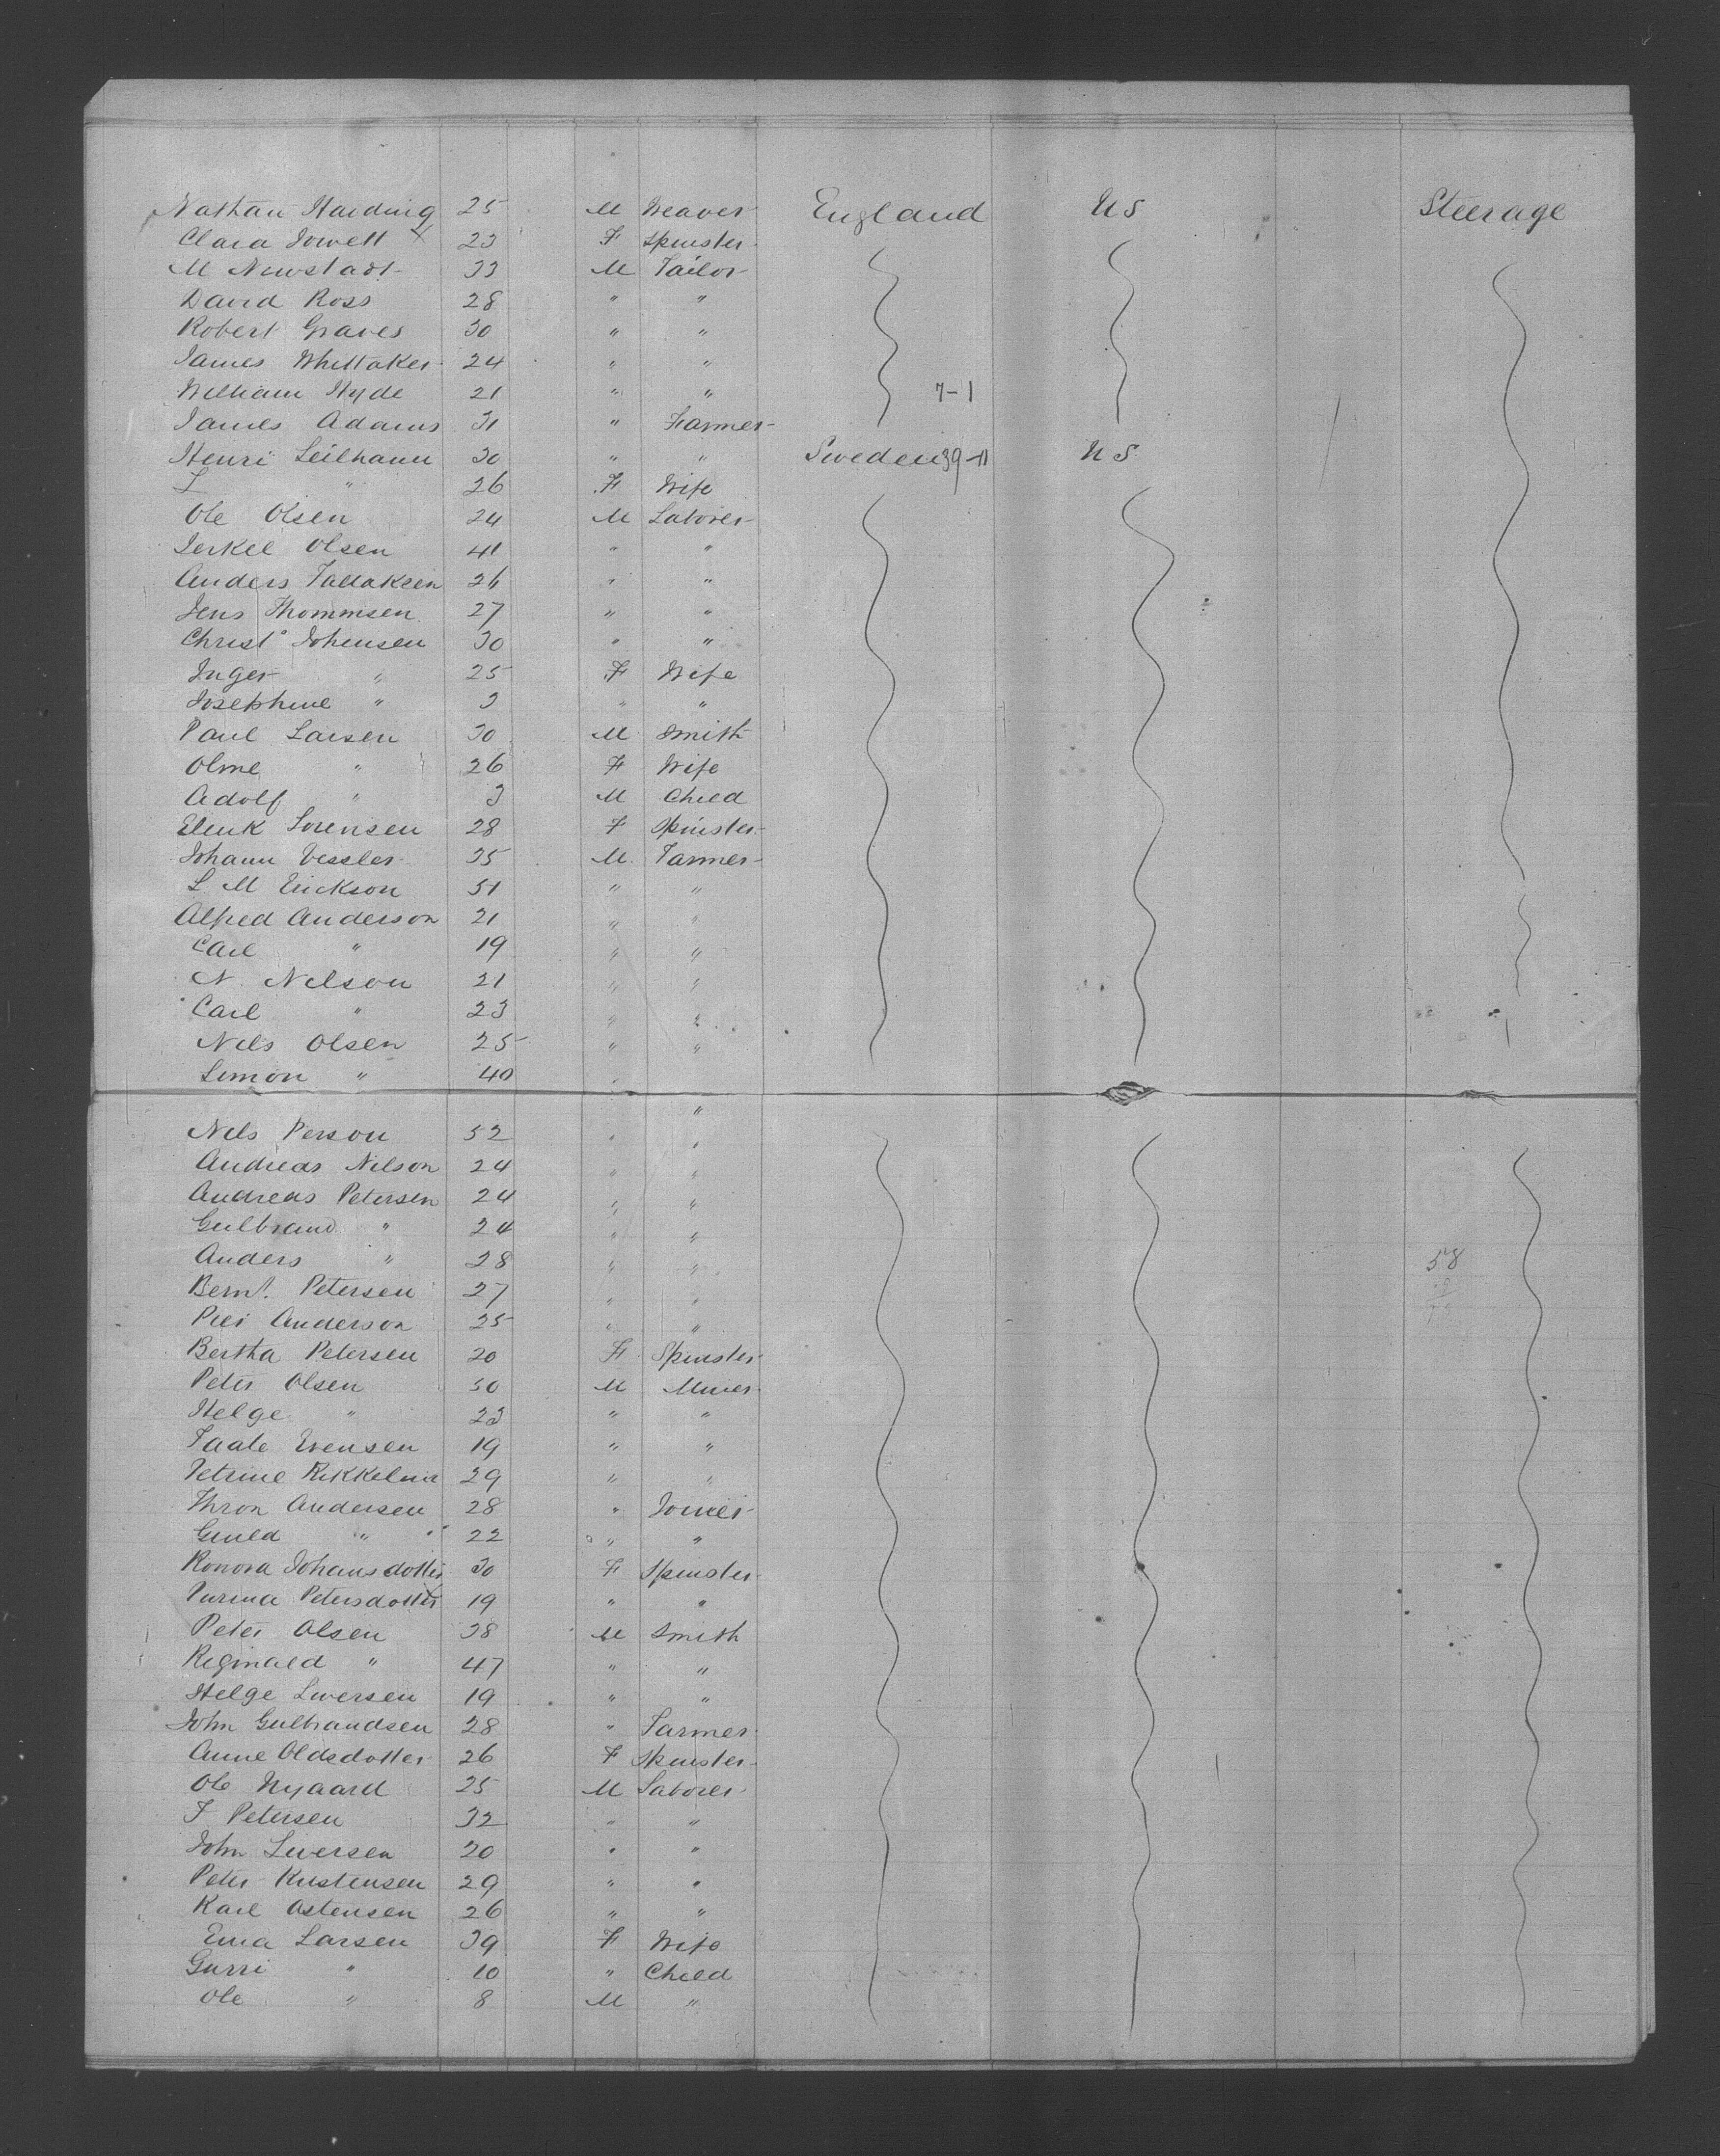 Nathan Harding 25 M Weaver England US Steerage
Clara Jowett X 23 F Spinster
M Newstadt 33 M Tailor
David Ross 28 " "
Robert Graves 30 " "
James Whittaker 24 " "
William Hyde 21 " " 7-1
James Adams 31 " Farmer
Henri Leilhann 30 " " Sweden 39-11 US
L " 26 F Wife
Ole Olsen 24 M Laborer
Jerkel Olsen 41 " "
Anders Tallaksen 26 " "
Jens Thommsen 27 " "
Christ° Johensen 30 " "
Inger " 25 F Wife
Josephine " 3 " "
Paul Larsen 30 M Smith
Olme " 26 F Wife
Adolf " 3 M Child
Elenk Sorensen 28 F Spinster
Johann Vessler 35 M Farmer
L M Erickson 51 " "
Alfred Anderson 21 " "
Carl " 19 " "
N. Nelson 21 " "
Carl " 23 " "
Nels Olsen 25 " "
Simon " 40 " "
Nels Person 52 " "
Andreas Nilson 24 " "
Andreas Petersen 24 " "
Gulbrand " 24 " "
Anders " 28 " " 58
Bernt. Petersen 27 " "
Peer Anderson 25 " "
Bertha Petersen 20 F Spinster
Peter Olsen 50 M Miner
Helge " 23 " "
Taale Evensen 19 " "
Petrine Rikkelmer 29 " "
Thron Andersen 28 " Joiner
Guuld " 22 " "
Ronora Johansdotter 30 F Spinster
Purina Petersdotter 19 " "
Peter Olsen 38 M Smith
Reginald " 47 " "
Helge Iversen 19 " "
John Gulbrandsen 28 " Farmer
Anne Oldsdotter 26 F Spinster
Ole Nygaard 25 M Laborer
J Petersen 32 " "
John Iversen 20 " "
Peter Kristensen 29 " "
Karl Ostensen 26 " "
Ema Larsen 39 F Wife
Gurri " 10 " Child
Ole " 8 M "